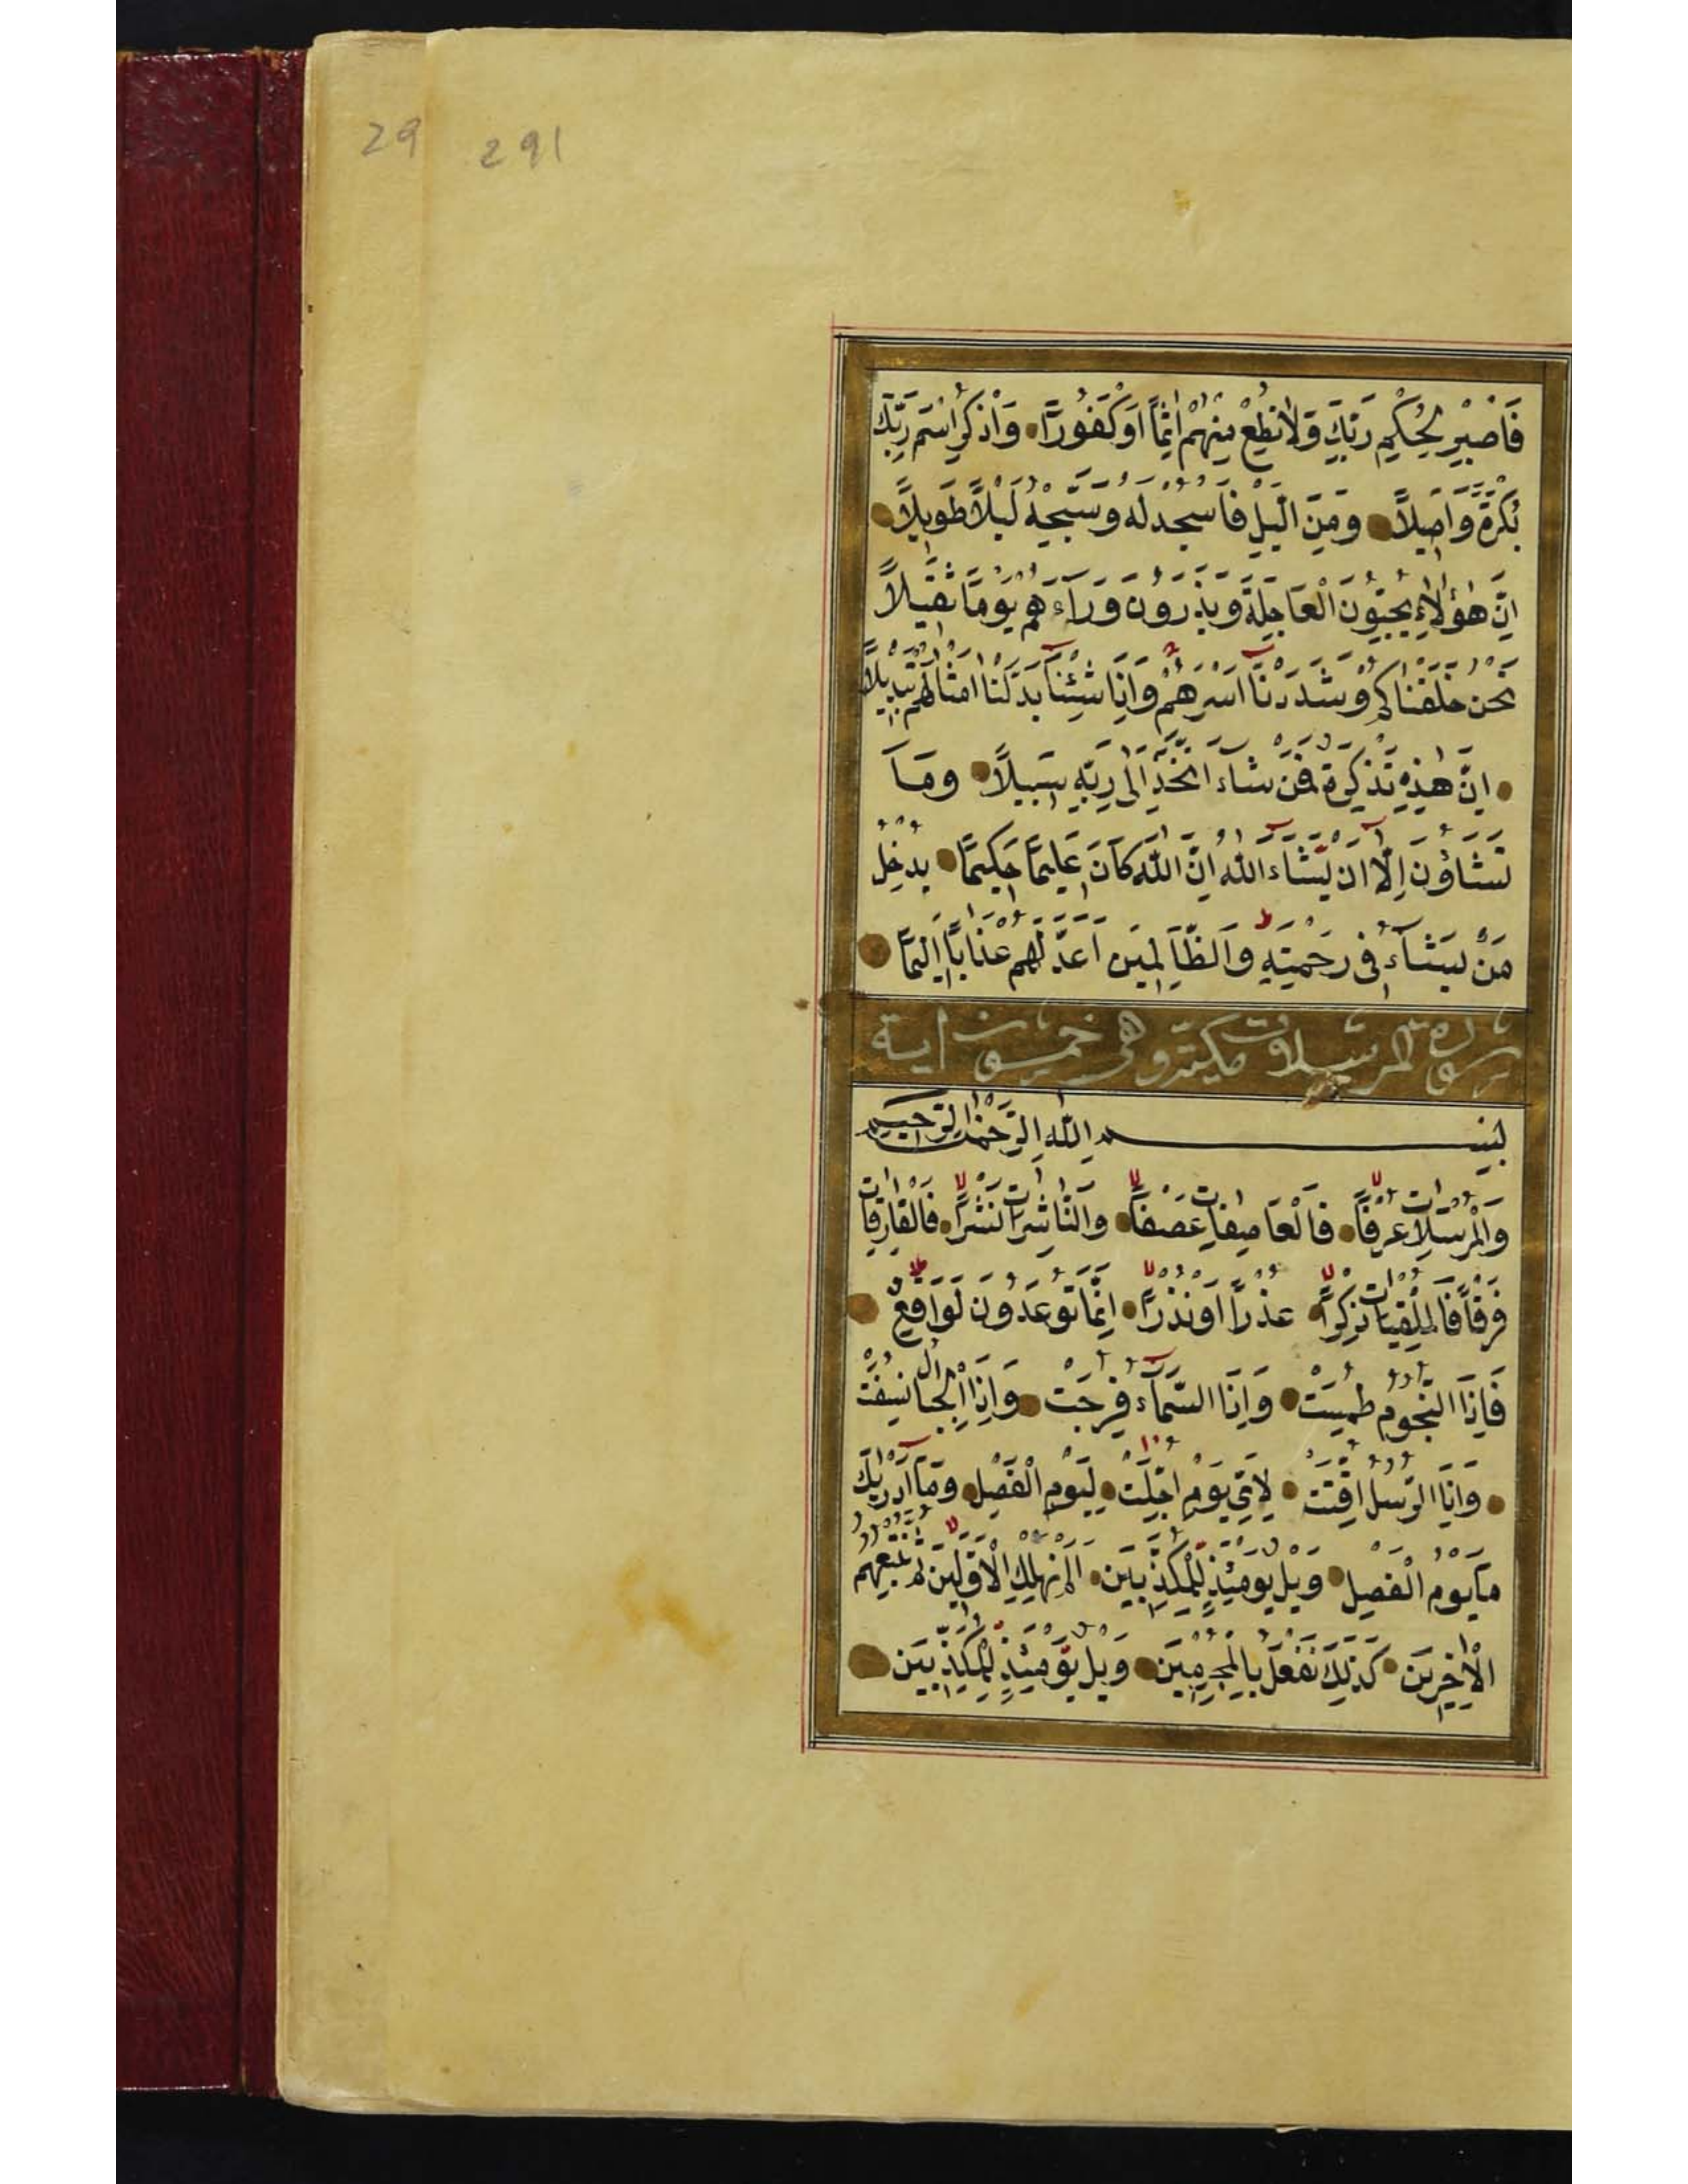 29 291
فَاصْبِرْ لِحُكْمِ رَبِّكَ وَلَا تُطِعْ مِنْهُمْ اٰثِمًا اَوْ كَفُورًا وَاذْكُرِ اسْمَ رَبِّكَ
بُكْرَةً وَاَصِيلًا وَمِنَ الَّيْلِ فَاسْجُدْ لَهُ وَسَبِّحْهُ لَيْلًا طَوِيلًا
اِنَّ هٰؤُلَاءِ يُحِبُّونَ الْعَاجِلَةَ وَيَذَرُونَ وَرَاءَهُمْ يَوْمًا ثَقِيلًا
نَحْنُ خَلَقْنَاكُمْ وَشَدَدْنَا اَسْرَهُمْ وَاِذَا شِئْنَا بَدَّلْنَا اَمْثَالَهُمْ تَبْدِيلًا
اِنَّ هٰذِهِ تَذْكِرَةٌ فَمَنْ شَاءَ اتَّخَذَ اِلٰى رَبِّهِ سَبِيلًا وَمَا
تَشَاؤُنَ اِلَّا اَنْ يَشَاءَ اللّٰهُ اِنَّ اللّٰهَ كَانَ عَلِيمًا حَكِيمًا يُدْخِلُ
مَنْ يَشَاءُ فِى رَحْمَتِهِ وَالظَّالِمِينَ اَعَدَّ لَهُمْ عَذَابًا اَلِيمًا
سورة المرسلات مكية وهى خمسون اية
بِسْمِ اللّٰهِ الرَّحْمٰنِ الرَّحِيمِ
وَالْمُرْسَلَاتِ عُرْفًا فَالْعَاصِفَاتِ عَصْفًا وَالنَّاشِرَاتِ نَشْرًا فَالْفَارِقَاتِ
فَرْقًا فَالْمُلْقِيَاتِ ذِكْرًا عُذْرًا اَوْ نُذْرًا اِنَّمَا تُوعَدُونَ لَوَاقِعٌ
فَاِذَا النُّجُومُ طُمِسَتْ وَاِذَا السَّمَاءُ فُرِجَتْ وَاِذَا الْجِبَالُ نُسِفَتْ
وَاِذَا الرُّسُلُ اُقِّتَتْ لِاَىِّ يَوْمٍ اُجِّلَتْ لِيَوْمِ الْفَصْلِ وَمَا اَدْرٰيكَ
مَا يَوْمُ الْفَصْلِ وَيْلٌ يَوْمَئِذٍ لِلْمُكَذِّبِينَ اَلَمْ نُهْلِكِ الْاَوَّلِينَ ثُمَّ نُتْبِعُهُمُ
الْاٰخِرِينَ كَذٰلِكَ نَفْعَلُ بِالْمُجْرِمِينَ وَيْلٌ يَوْمَئِذٍ لِلْمُكَذِّبِينَ